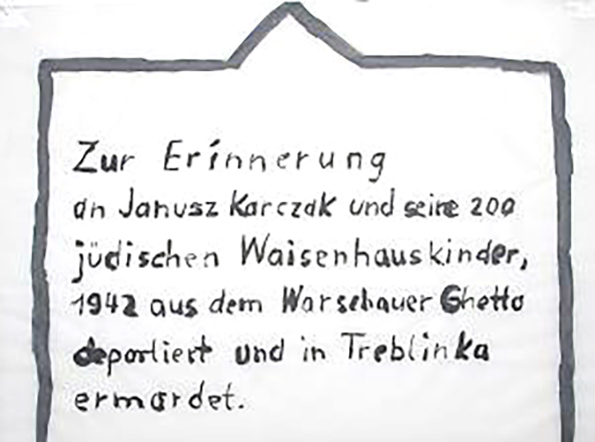 Zur Erinnerung
an Janusz Karczak und seine 200
jüdischen Waisenhauskinder,
1942 aus dem Warschauer Ghetto
deportiert und in Treblinka
ermordet.